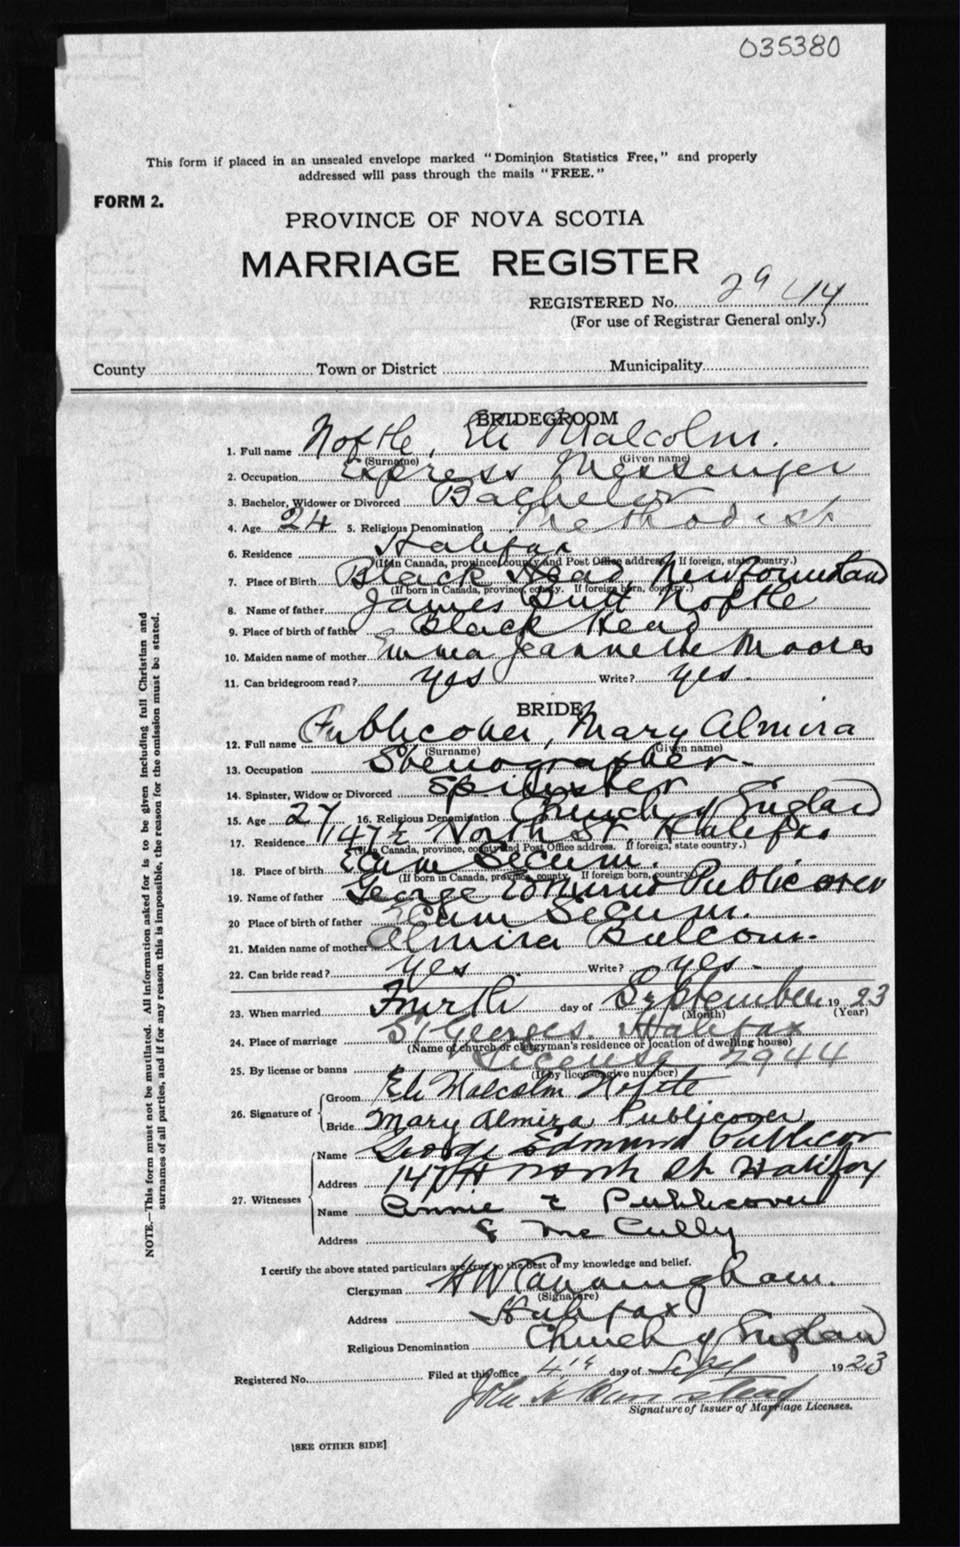 035380
This form if placed in an unsealed envelope marked "Dominion Statistics Free," and properly
addressed will pass through the mails "FREE."
FORM 2.
PROVINCE OF NOVA SCOTIA
MARRIAGE REGISTER
REGISTERED No. 2944
(For use of Registrar General only.)
County Town or District Municipality
BRIDEGROOM
1. Full name Noftle, Eli Malcolm.
(Surname) (Given name)
2. Occupation Express Messenger
3. Bachelor, Widower or Divorced Bachelor
4. Age 24 5. Religious Denomination Methodist
6. Residence Halifax
(If in Canada, province, county and Post Office address. If foreign, state country.)
7. Place of Birth Black Head, Newfoundland
(If born in Canada, province, county. If foreign born, country.)
8. Name of father James Butt Noftle
9. Place of birth of father Black Head
10. Maiden name of mother Emma Jeannette Moores
11. Can bridegroom read? yes Write? yes.
BRIDE
12. Full name Publicover, Mary Almira
(Surname) (Given name)
13. Occupation Stenographer
14. Spinster, Widow or Divorced Spinster
15. Age 27 16. Religious Denomination Church of England
17. Residence 147½ North St, Halifax
(If in Canada, province, county and Post Office address. If foreign, state country.)
18. Place of birth Ecum Secum.
(If born in Canada, province, county. If foreign born, country)
19. Name of father George Edmund Publicover
20 Place of birth of father Ecum Secum.
21. Maiden name of mother Almira Balcom.
22. Can bride read? yes Write? yes.
23. When married Fourth day of September 1923
(Month) (Year)
24. Place of marriage St Georges. Halifax
(Name of church or clergyman's residence or location of dwelling house)
25. By license or banns License 2944
(If by license give number)
26. Signature of Groom Eli Malcolm Noftle
Bride Mary Almira Publicover
27. Witnesses Name George Edmund Publicover
Address 147½ North St Halifax
Name Annie E Publicover
Address McCully
I certify the above stated particulars are true to the best of my knowledge and belief.
Clergyman H W Cunningham.
(Signature)
Address Halifax.
Religious Denomination Church of England
Registered No. Filed at this office 4th day of Sept 1923
John
Signature of Issuer of Marriage Licenses.
[SEE OTHER SIDE]
NOTE.—This form must not be mutilated. All information asked for is to be given including full Christian and
surnames of all parties, and if for any reason this is impossible, the reason for the omission must be stated.